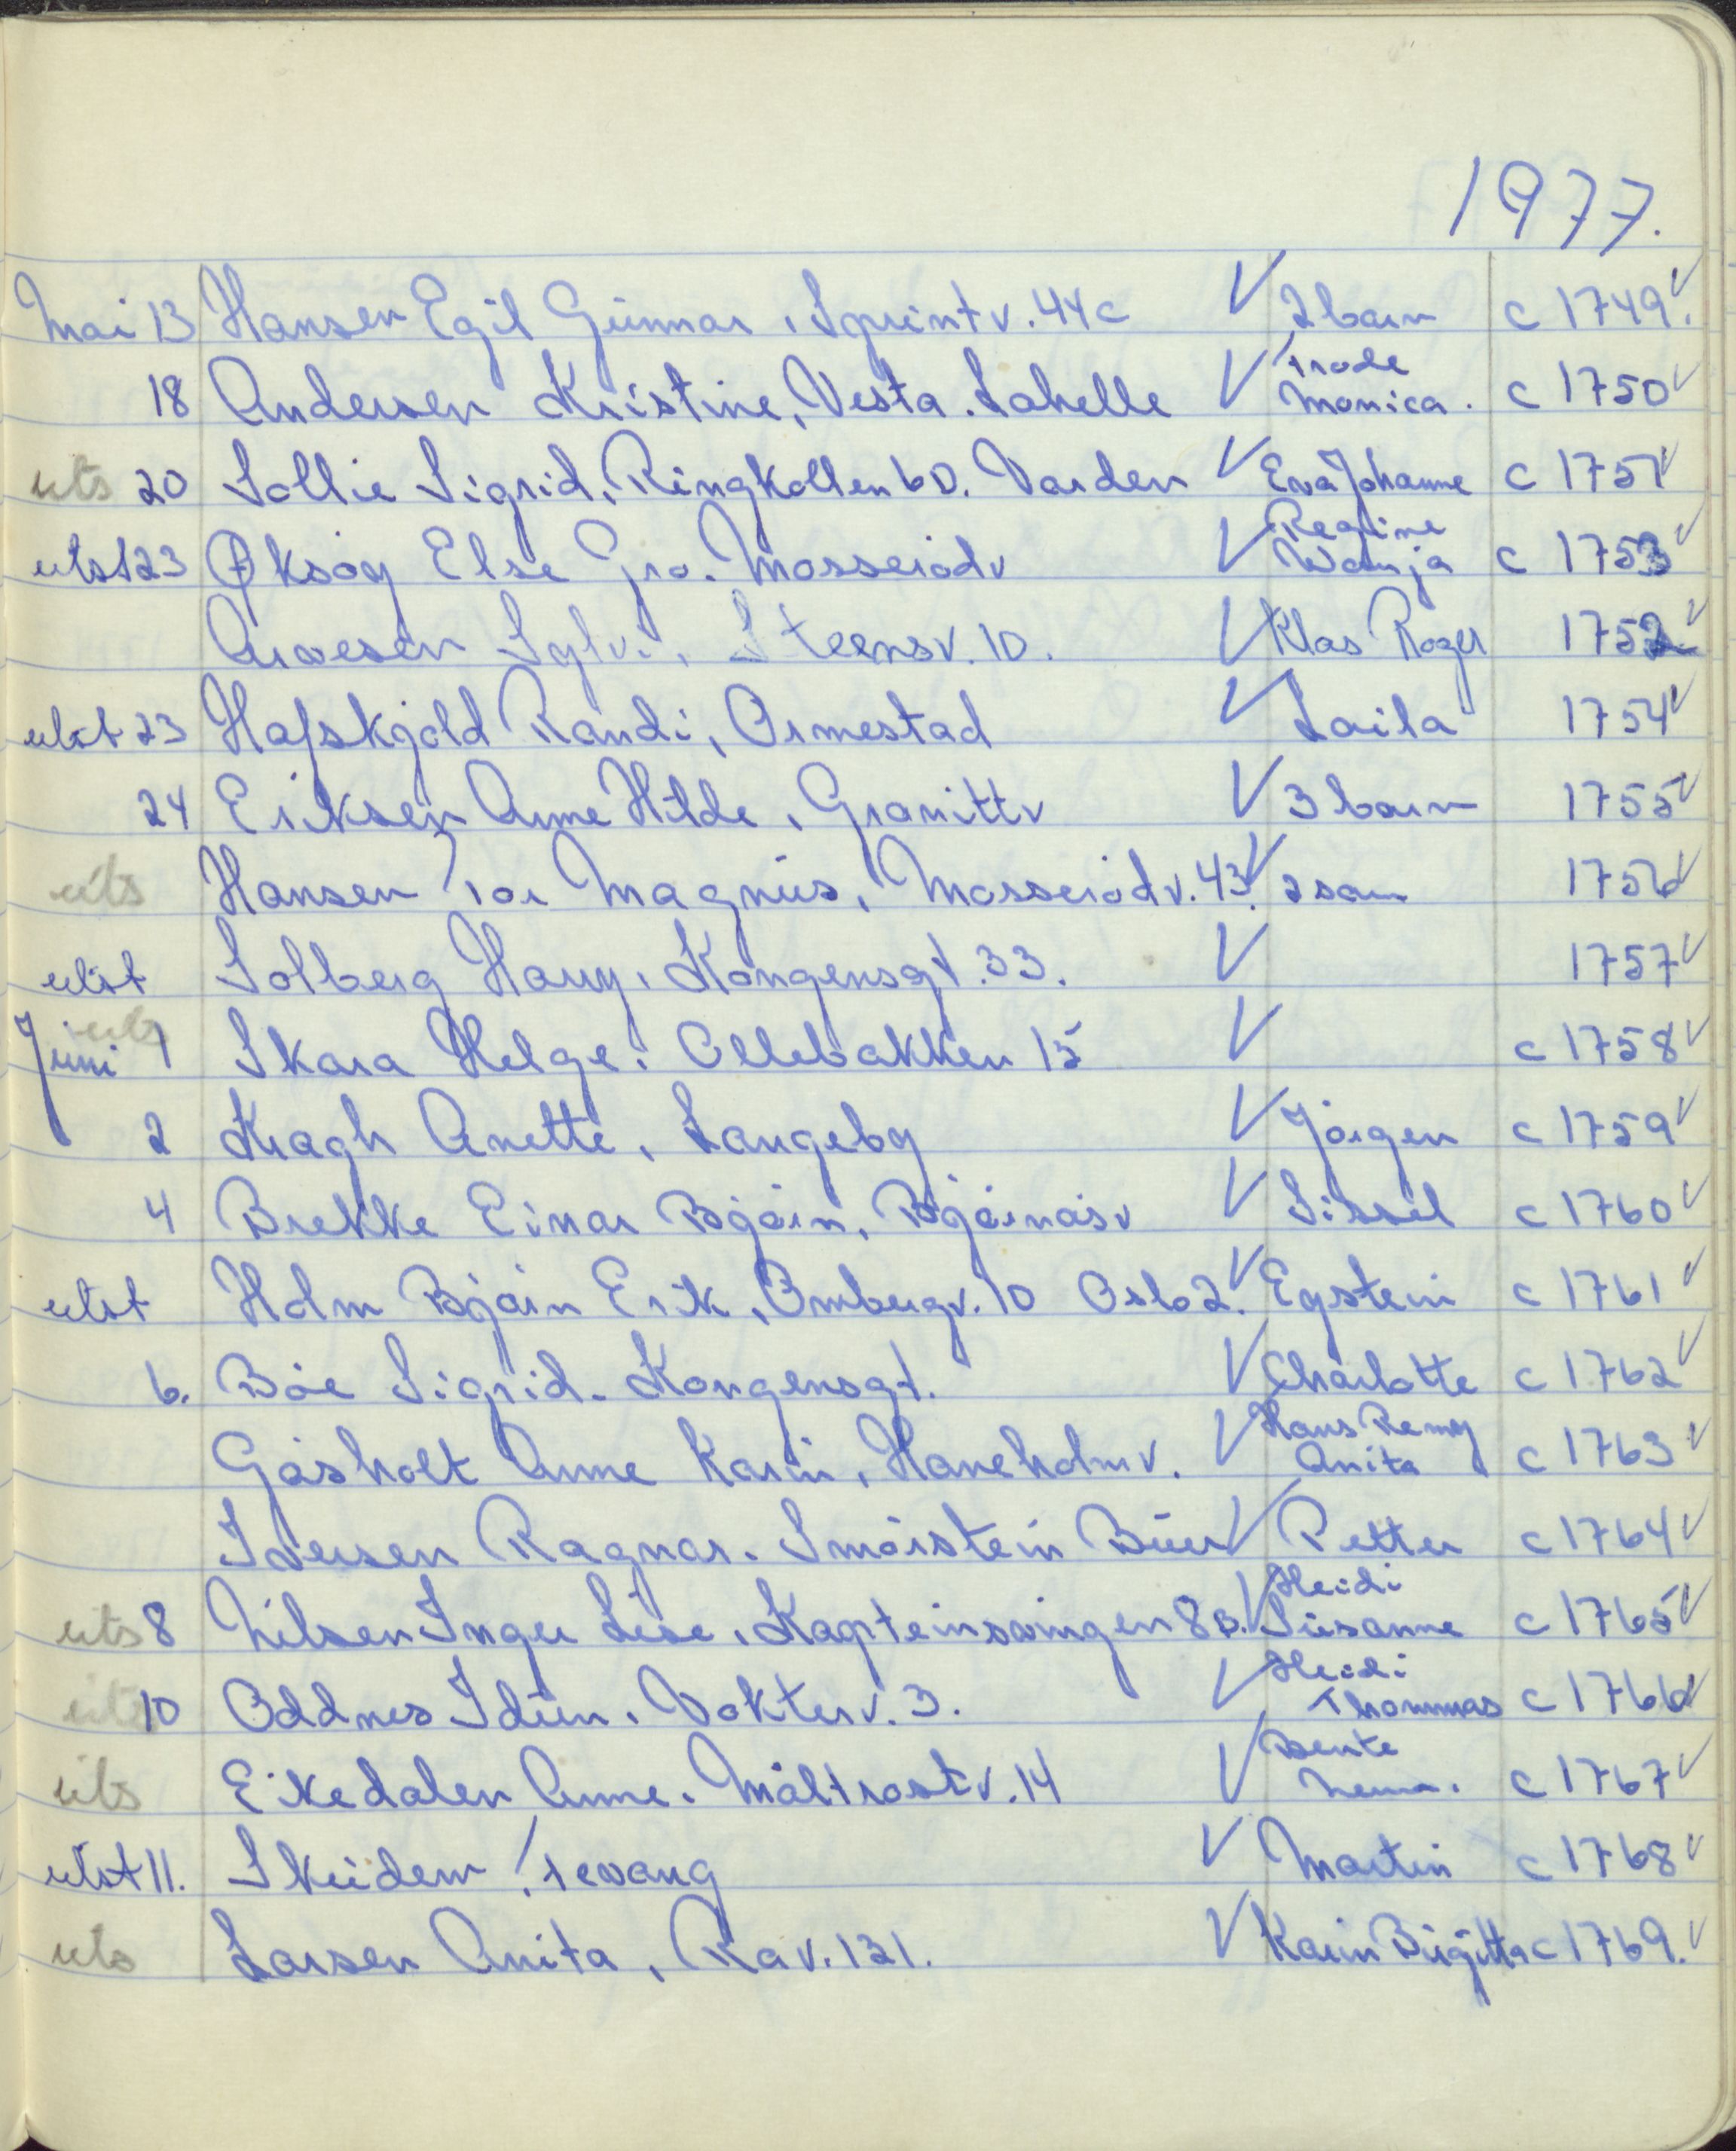 1977.
Mai 13 Hansen Egil Gunnar, Sprintv. 44c √ 2 barn c 1749. √
Frode
18 Andersen Kristine, Vesta. Lahelle √ Monica. c 1750 √
uts 20 Sollie Sigrid, Ringkollen 6D. Varden √ Eva Johanne c 1751 √
Regine
utst 23 Øksøy Else Gro. Mosserødv √ Wanja c 1753 √
Arvesen Sylvi, Steensv. 10. √ Klas Roger 1752 √
utst 23 Hafskjold Randi, Ormestad √ Laila 1754 √
24 Eriksen Anne Hilde, Granittv √ 3 barn 1755 √
uts Hansen Tor Magnus, Mosserødv. 43. √ 2 barn 1756 √
utst Solberg Harry, Kongensgt. 33. √ 1757 √
uts
Juni 1 Skara Helge. Ollebakken 15 √ c 1758 √
2 Kragh Anette, Langeby √ Jørgen c 1759 √
4 Brekke Einar Bjørn, Bjørnåsv √ Sissel c 1760 √
utst Holm Bjørn Erik, Ombergv. 10 Oslo 2. √ Eystein c 1761 √
6. Bøe Sigrid. Kongensgt. √ Charlotte c 1762 √
Hans Remy
Gåsholt Anne Karin, Haneholmv. √ Anita c 1763 √
Iversen Ragnar. Smørstein Buer √ Petter c 1764 √
Heidi
uts 8 Nilsen Inger Lise, Kapteinsvingen 8B. √ Susanne c 1765 √
Heidi
uts 10 Oddnes Idun. Vokterv. 3. √ Thommas c 1766 √
Bente
uts Eikedalen Anne. Måltrostv. 14 √ c 1767 √
utst 11. Skuidem Trevang √ Martin c 1768 √
uts Larsen Anita, Rav. 121. √ Karin Birgitta c 1769. √